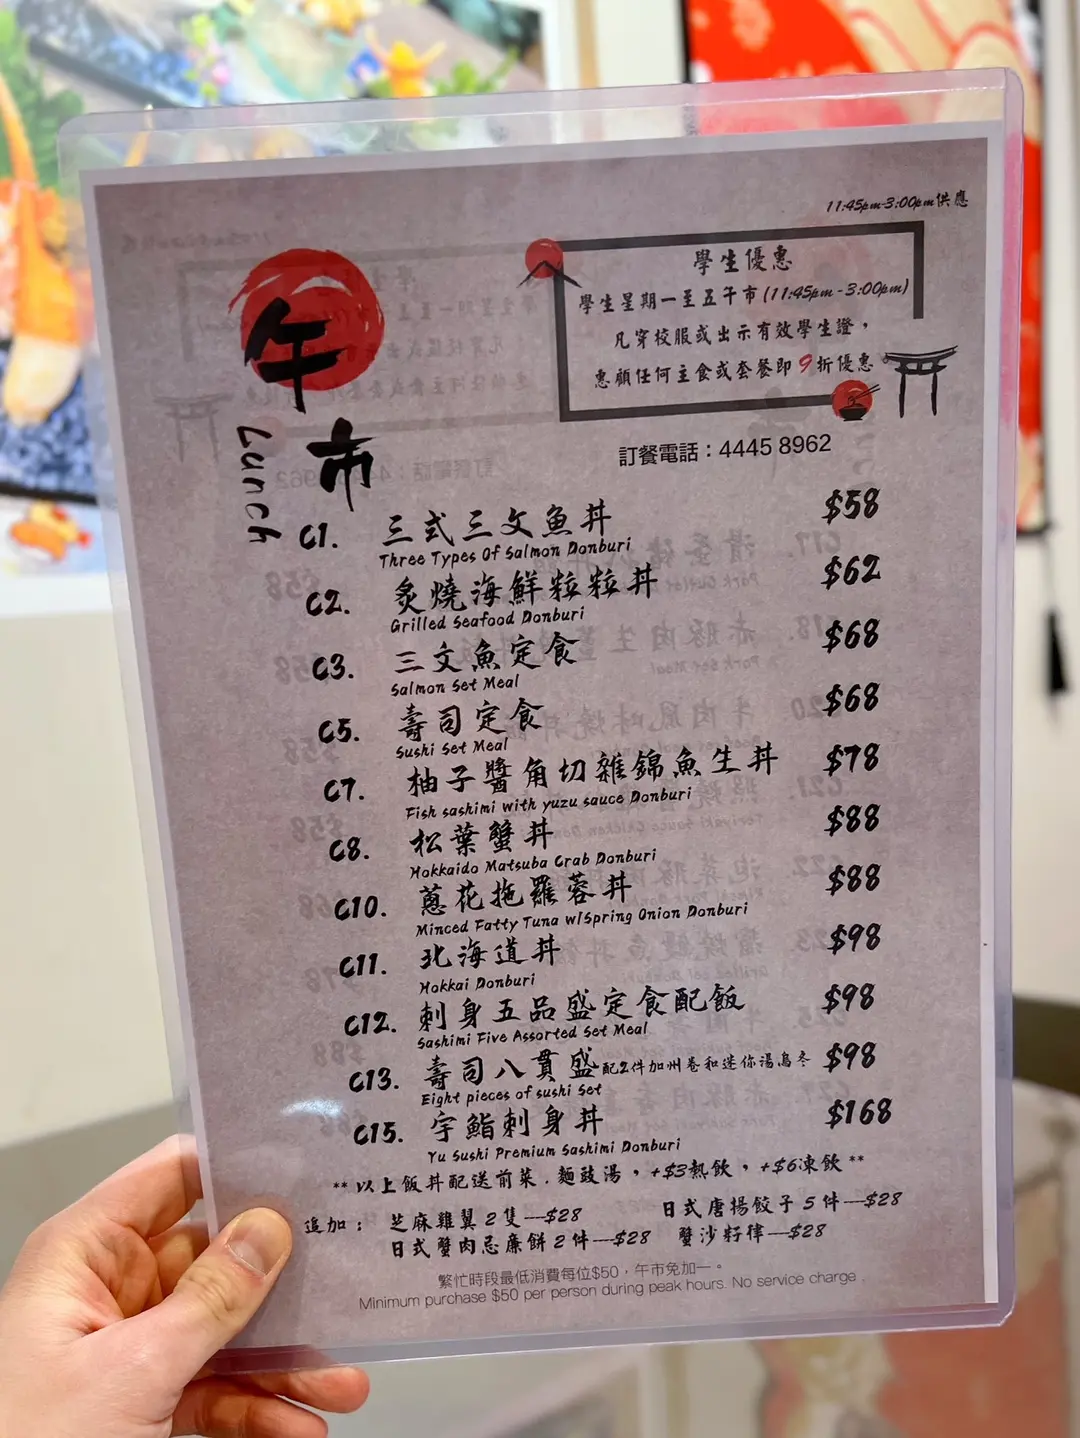 11:45pm-3:00pm供應
學生優惠
學生星期一至五午市(11:45pm-3:00pm)
凡穿校服或出示有效學生證，
惠顧任何主食或套餐即9折優惠
午市
Lunch
訂餐電話：4445 8962
C1. 三式三文魚丼 $58
Three Types Of Salmon Donburi
C2. 炙燒海鮮粒粒丼 $62
Grilled Seafood Donburi
C3. 三文魚定食 $68
Salmon Set Meal
C5. 壽司定食 $68
Sushi Set Meal
C7. 柚子醬角切雜錦魚生丼 $78
Fish sashimi with yuzu sauce Donburi
C8. 松葉蟹丼 $88
Hokkaido Matsuba Crab Donburi
C10. 蔥花拖羅蓉丼 $88
Minced Fatty Tuna w/Spring Onion Donburi
C11. 北海道丼 $98
Hokkai Donburi
C12. 刺身五品盛定食配飯 $98
Sashimi Five Assorted Set Meal
C13. 壽司八貫盛配2件加州卷和迷你湯烏冬 $98
Eight pieces of sushi Set
C15. 宇鮨刺身丼 $168
Yu Sushi Premium Sashimi Donburi
**以上飯丼配送前菜.麵豉湯，+$3熱飲，+$6凍飲**
追加： 芝麻雞翼2隻—$28 日式唐揚餃子5件—$28
日式蟹肉忌廉餅2件—$28 蟹沙籽律—$28
繁忙時段最低消費每位$50，午市免加一。
Minimum purchase $50 per person during peak hours. No service charge.